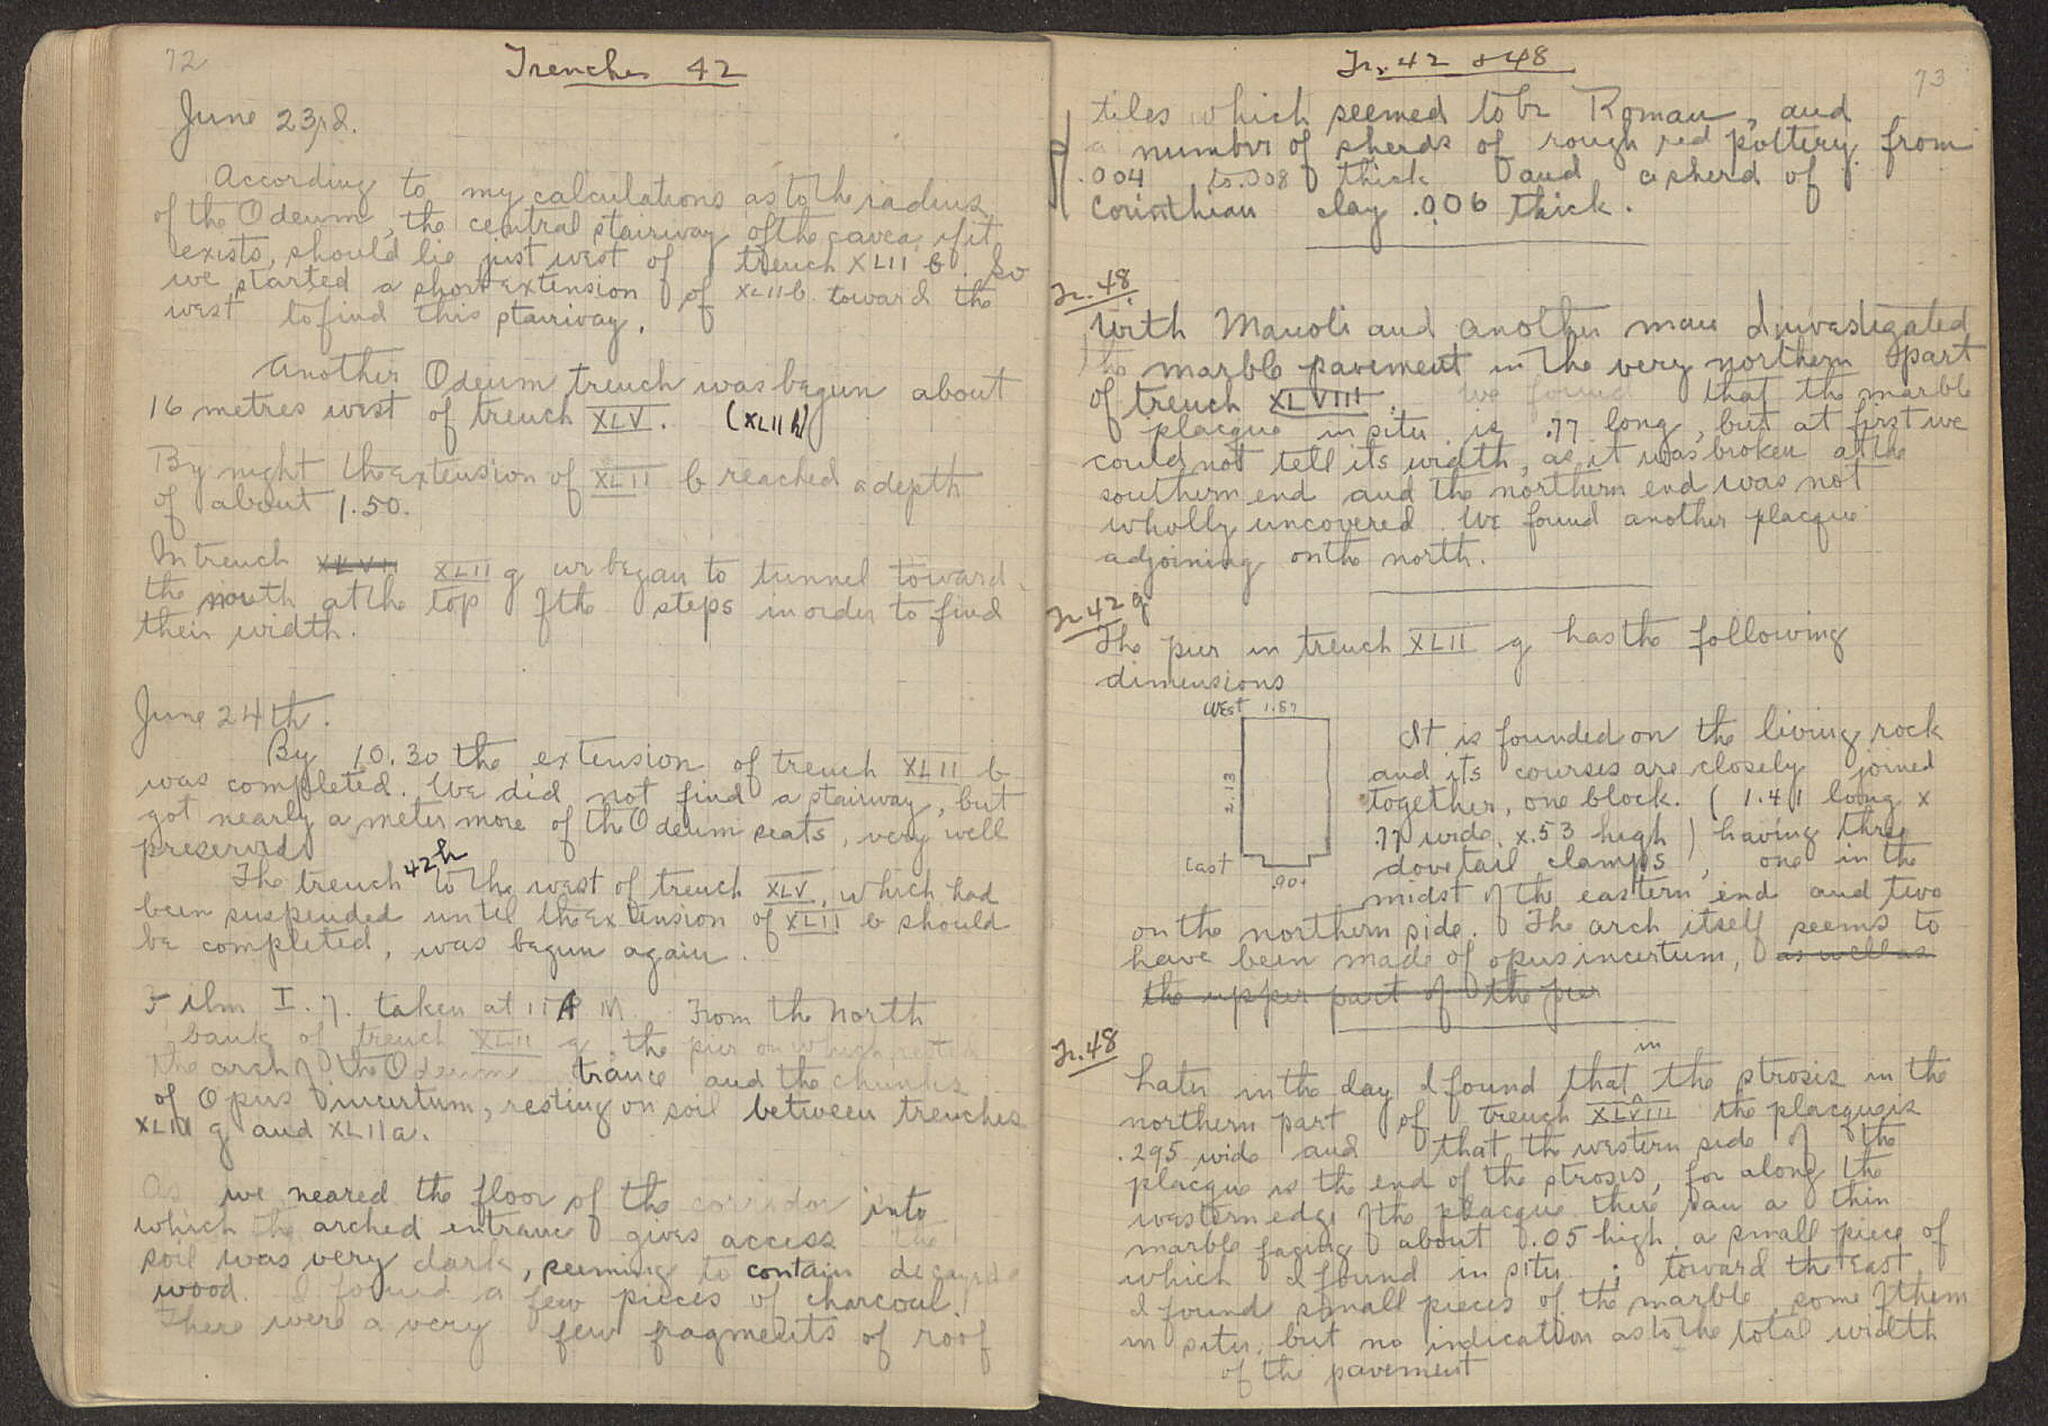 72
Trenches 42
June 23rd.
According to my calculations as to the radius
of the Odeum, the central stairway of the cavea, if it
exists, should lie just west of trench XLII b. So
we started a short extension of XLII b. toward the
west to find this stairway.
Another Odeum trench was begun about
16 metres west of trench XLV. (XLII h)
By night the extension of XLII b reached a depth
of about 1.50.
In trench XLII g we began to tunnel toward
the north at the top of the steps in order to find
their width.
June 24th.
By 10.30 the extension of trench XLII b
was completed. We did not find a stairway, but
got nearly a meter more of the Odeum seats, very well
preserved.
The trench 42h to the west of trench XLV, which had
been suspended until the extension of XLII b should
be completed, was begun again.
Film I. 7. taken at 11 A M. From the north
bank of trench XLII g, the pier on which rested
the arch of the Odeum trance and the chunks
of Opus incertum, resting on soil between trenches
XLII g and XLII a.
As we neared the floor of the corridor into
which the arched entrance gives access the
soil was very dark, seeming to contain decayed
wood. I found a few pieces of charcoal.
There were a very few fragments of roof
Tr. 42 + 48
73
tiles which seemed to be Roman, and
a number of sherds of rough red pottery from
.004 to .008 thick and a sherd of
Corinthian clay .006 thick.
Tr. 48
With Manoli and another man I investigated
the marble pavement in the very northern part
of trench XLVIII. We found that the marble
placque in situ is .77 long, but at first we
could not tell its width, as it was broken at the
southern end and the northern end was not
wholly uncovered. We found another placque
adjoining on the north.
Tr. 42 g
The pier in trench XLII g has the following
dimensions
West 1.87
2.13
East
.90
It is founded on the living rock
and its courses are closely joined
together, one block. (1.41 long x
.77 wide x .53 high) having three
dovetail clamps, one in the
midst of the eastern end and two
on the northern side. The arch itself seems to
have been made of opus incertum, as well as
the upper part of the pier
Tr. 48
Later in the day I found that in the strosis in the
northern part of trench XLVIII the placque is
.295 wide and that the western side of the
placque is the end of the strosis, for along the
western edge of the placque there ran a thin
marble facing about .05 high, a small piece of
which I found in situ; toward the East
I found small pieces of the marble, some of them
in situ, but no indication as to the total width
of the pavement